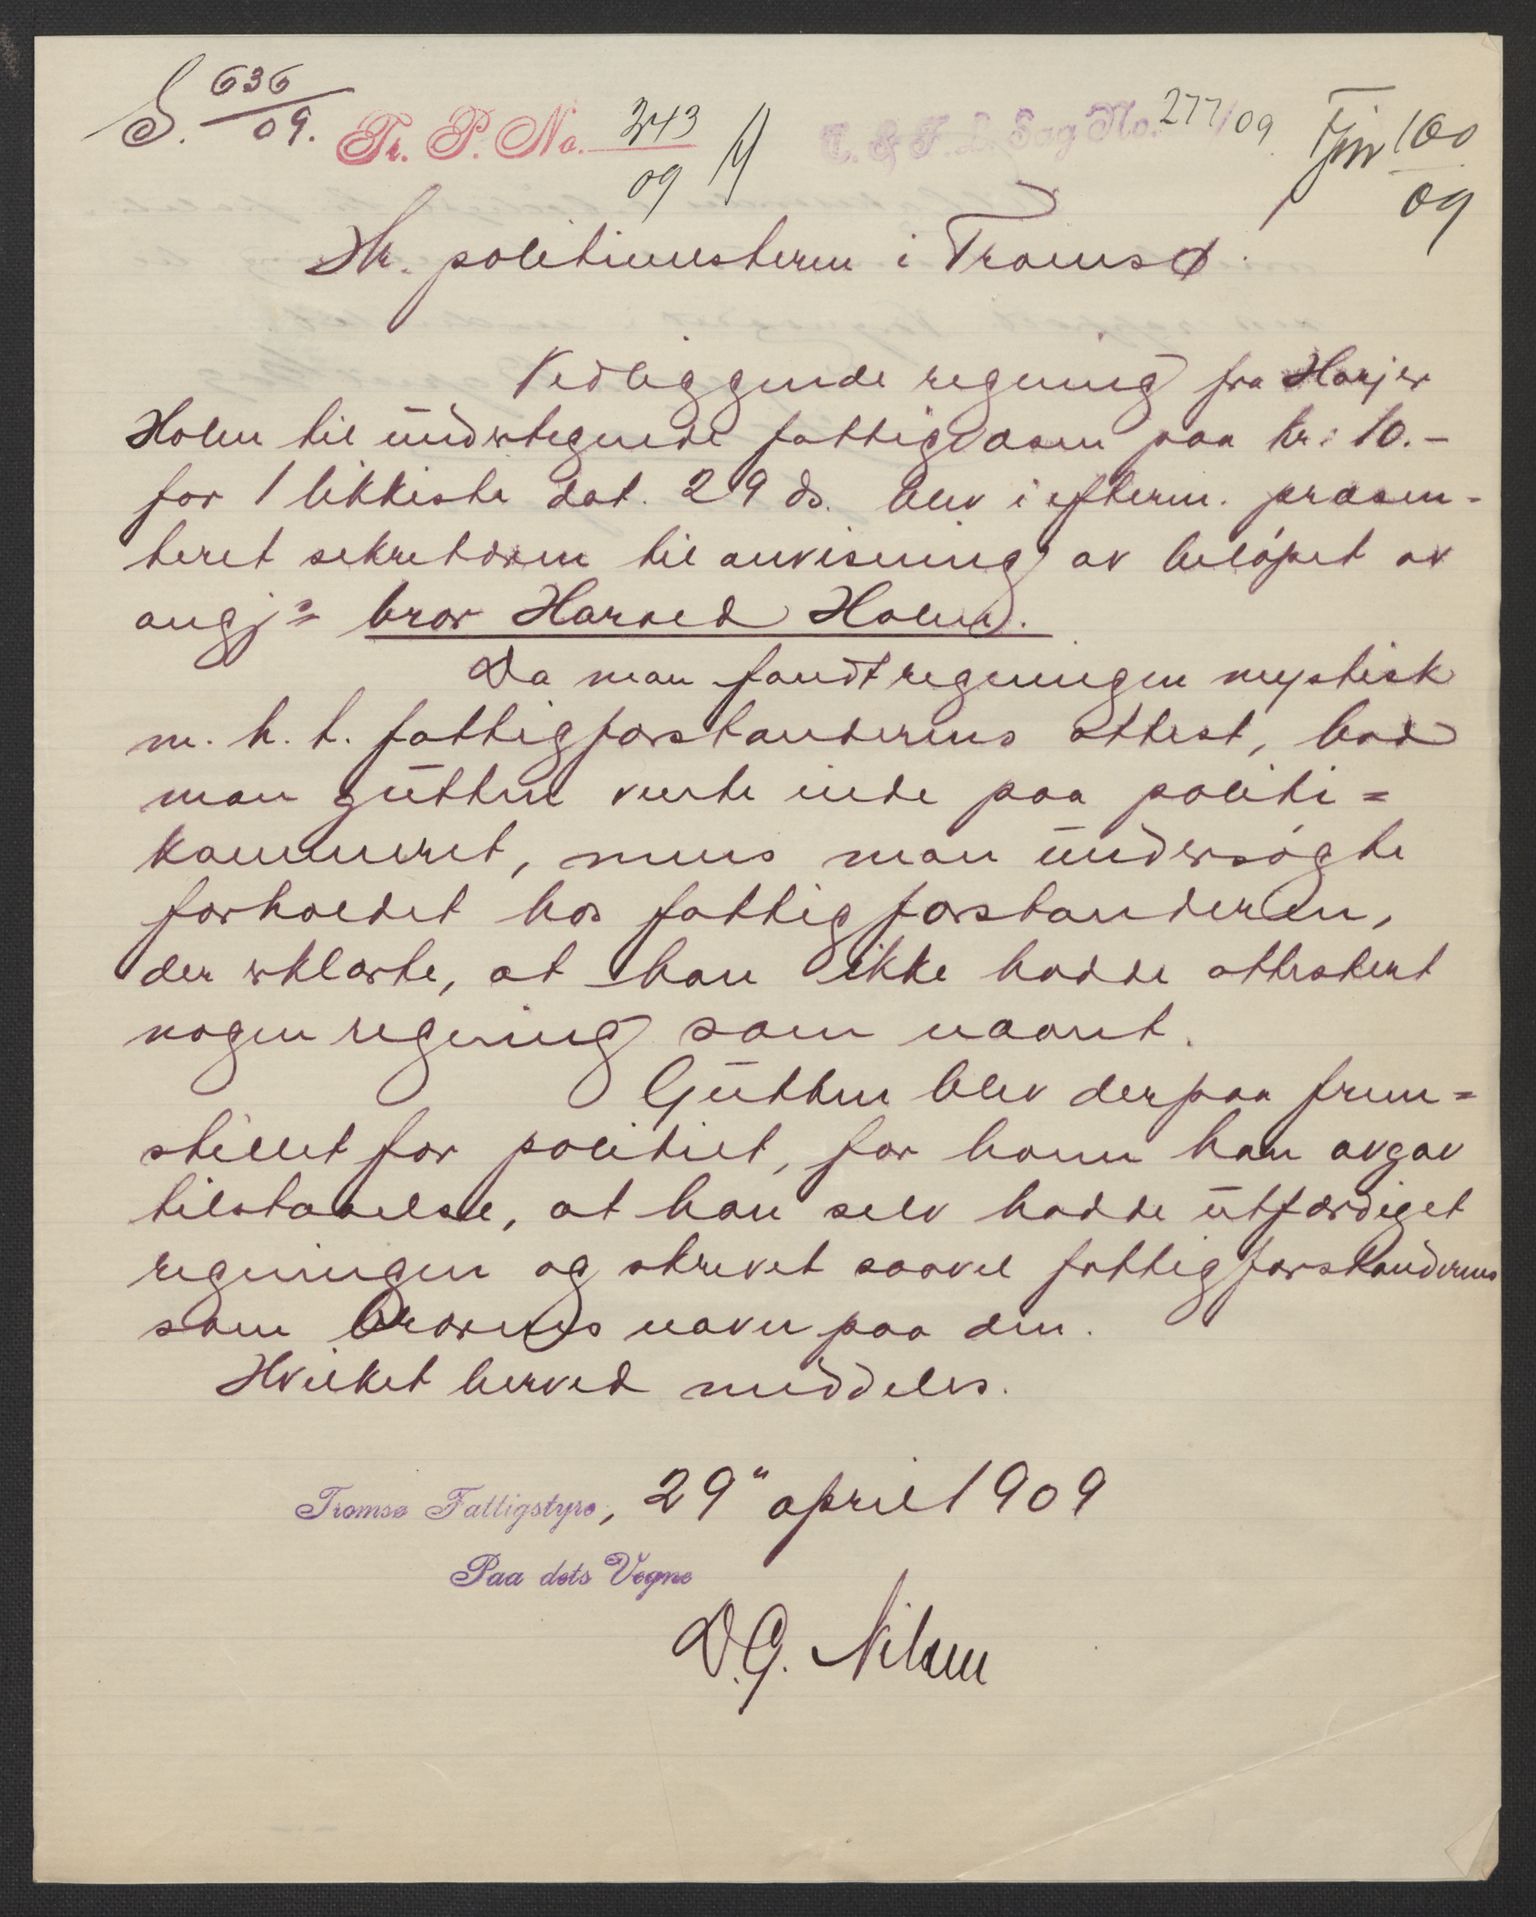 S. 636/09. Tr. P. No. 343/09 T. & F. L. Sag No. 277/09 100/09
Hr. politimesteren i Tromsø.
Vedliggende regning fra Harjer
Holm til undertegnede fattigvæsen paa kr: 10.-
for 1 likkiste dat. 29 ds. blev i efterm. præsen-
teret sekretæren til anvisning av beløpet av
angj= bror Harald Holm.
Da man fandt regningen mystisk
m. h. t. fattigforstanderens attest, bad
man gutten vente inde paa politi=
kammeret, mens man undersøgte
forholdet hos fattigforstanderen,
der erklærte, at han ikke hadde attestert
nogen regning som nævnt.
Gutten blev derpaa frem=
stillet for politiet, for hvem han avgav
tilstaaelse, at han selv hadde utfærdiget
regningen og skrevet saavel fattigforstanderens
som brorens navn paa den.
Hvilket herved meddeles.
Tromsø Fattigstyre, 29" april 1909
Paa dets Vegne
D. G. Nilsen